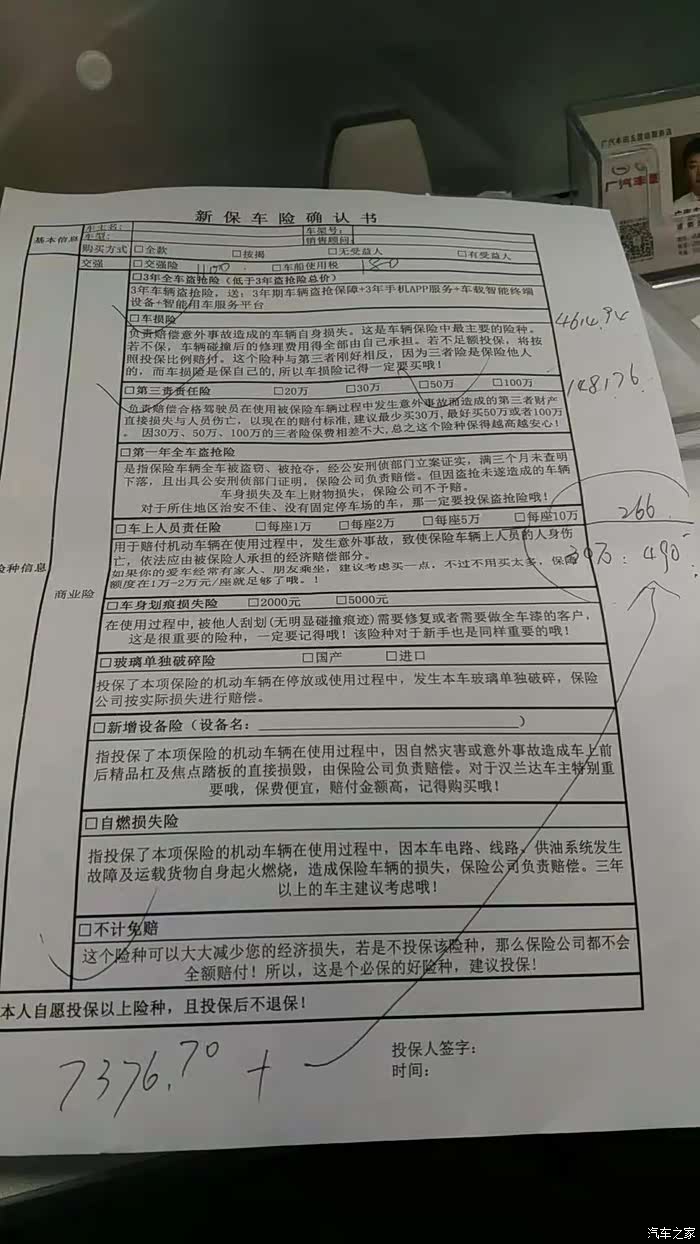 广汽丰田玉营店
广汽丰田
新保车险确认书
基本信息
车主名：
车架号：
车型：
销售顾问：
购买方式 □全款 □按揭 □无受益人 □有受益人
交强 □交强险 □车船使用税 180
□3年全车盗抢险（低于3年盗抢险总价）
3年车辆盗抢险，送：3年期车辆盗抢保障+3年手机APP服务+车载智能终端
设备+智能用车服务平台
□车损险
负责赔偿意外事故造成的车辆自身损失。这是车辆保险中最主要的险种。
若不保，车辆碰撞后的修理费用得全部由自己承担。若不足额投保，将按
照投保比例赔付。这个险种与第三者刚好相反，因为三者险是保险他人
的，而车损险是保自己的,所以车损险记得一定要买哦！
4614.94
□第三责责任险 □20万 □30万 □50万 □100万
1481.76
负责赔偿合格驾驶员在使用被保险车辆过程中发生意外事故而造成的第三者财产
直接损失与人员伤亡，以现在的赔付标准,建议最少买30万,最好买50万或者100万
。 因30万、50万、100万的三者险保费相差不大,总之这个险种保得越高越安心！
□第一年全车盗抢险
是指保险车辆全车被盗窃、被抢夺，经公安刑侦部门立案证实，满三个月未查明
下落，且出具公安刑侦部门证明，保险公司负责赔偿。但因盗抢未遂造成的车辆
车身损失及车上财物损失，保险公司不予赔。
对于所住地区治安不佳、没有固定停车场的车，那一定要投保盗抢险哦！
□车上人员责任险 □每座1万 □每座2万 □每座5万 □每座10万
266
用于赔付机动车辆在使用过程中，发生意外事故，致使保险车辆上人员的人身伤
亡，依法应由被保险人承担的经济赔偿部分。
如果你的爱车经常有家人、朋友乘坐，建议考虑买一点，不过不用买太多，保险
额度在1万-2万元/座就足够了哦。！
490
险种信息
商业险
□车身划痕损失险 □2000元 □5000元
在使用过程中,被他人刮划(无明显碰撞痕迹)需要修复或者需要做全车漆的客户，
这是很重要的险种，一定要记得哦！该险种对于新手也是同样重要的哦！
□玻璃单独破碎险 □国产 □进口
投保了本项保险的机动车辆在停放或使用过程中，发生本车玻璃单独破碎，保险
公司按实际损失进行赔偿。
□新增设备险（设备名：＿＿＿＿＿＿＿＿＿＿＿＿）
指投保了本项保险的机动车辆在使用过程中，因自然灾害或意外事故造成车上前
后精品杠及焦点踏板的直接损毁，由保险公司负责赔偿。对于汉兰达车主特别重
要哦，保费便宜，赔付金额高，记得购买哦！
□自燃损失险
指投保了本项保险的机动车辆在使用过程中，因本车电路、线路、供油系统发生
故障及运载货物自身起火燃烧，造成保险车辆的损失，保险公司负责赔偿。三年
以上的车主建议考虑哦！
□不计免赔
这个险种可以大大减少您的经济损失，若是不投保该险种，那么保险公司都不会
全额赔付！所以，这是个必保的好险种，建议投保！
本人自愿投保以上险种，且投保后不退保！
7376.70 +
投保人签字：
时间：
汽车之家